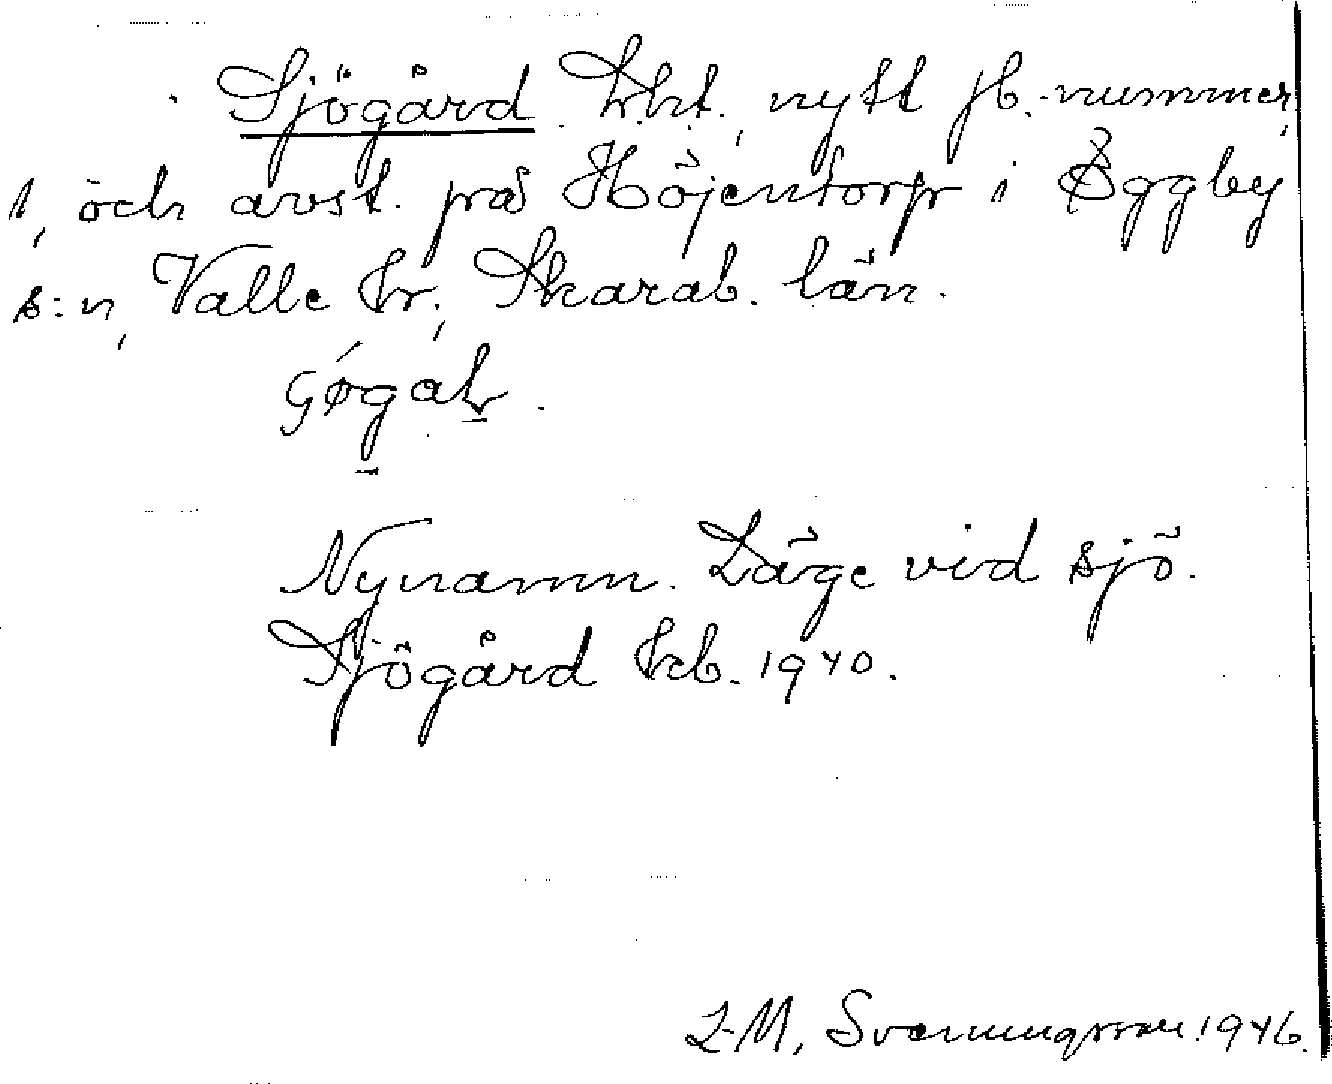 Sjögård Lht., nytt jb.-nummer,
1, och avst. på Höjentorp i Öggby
s:n, Valle hr., Skarab. län.
Nynamn. Läge vid sjö.
Sjögård kb. 1940.
L-M, Svenningsson 1946.